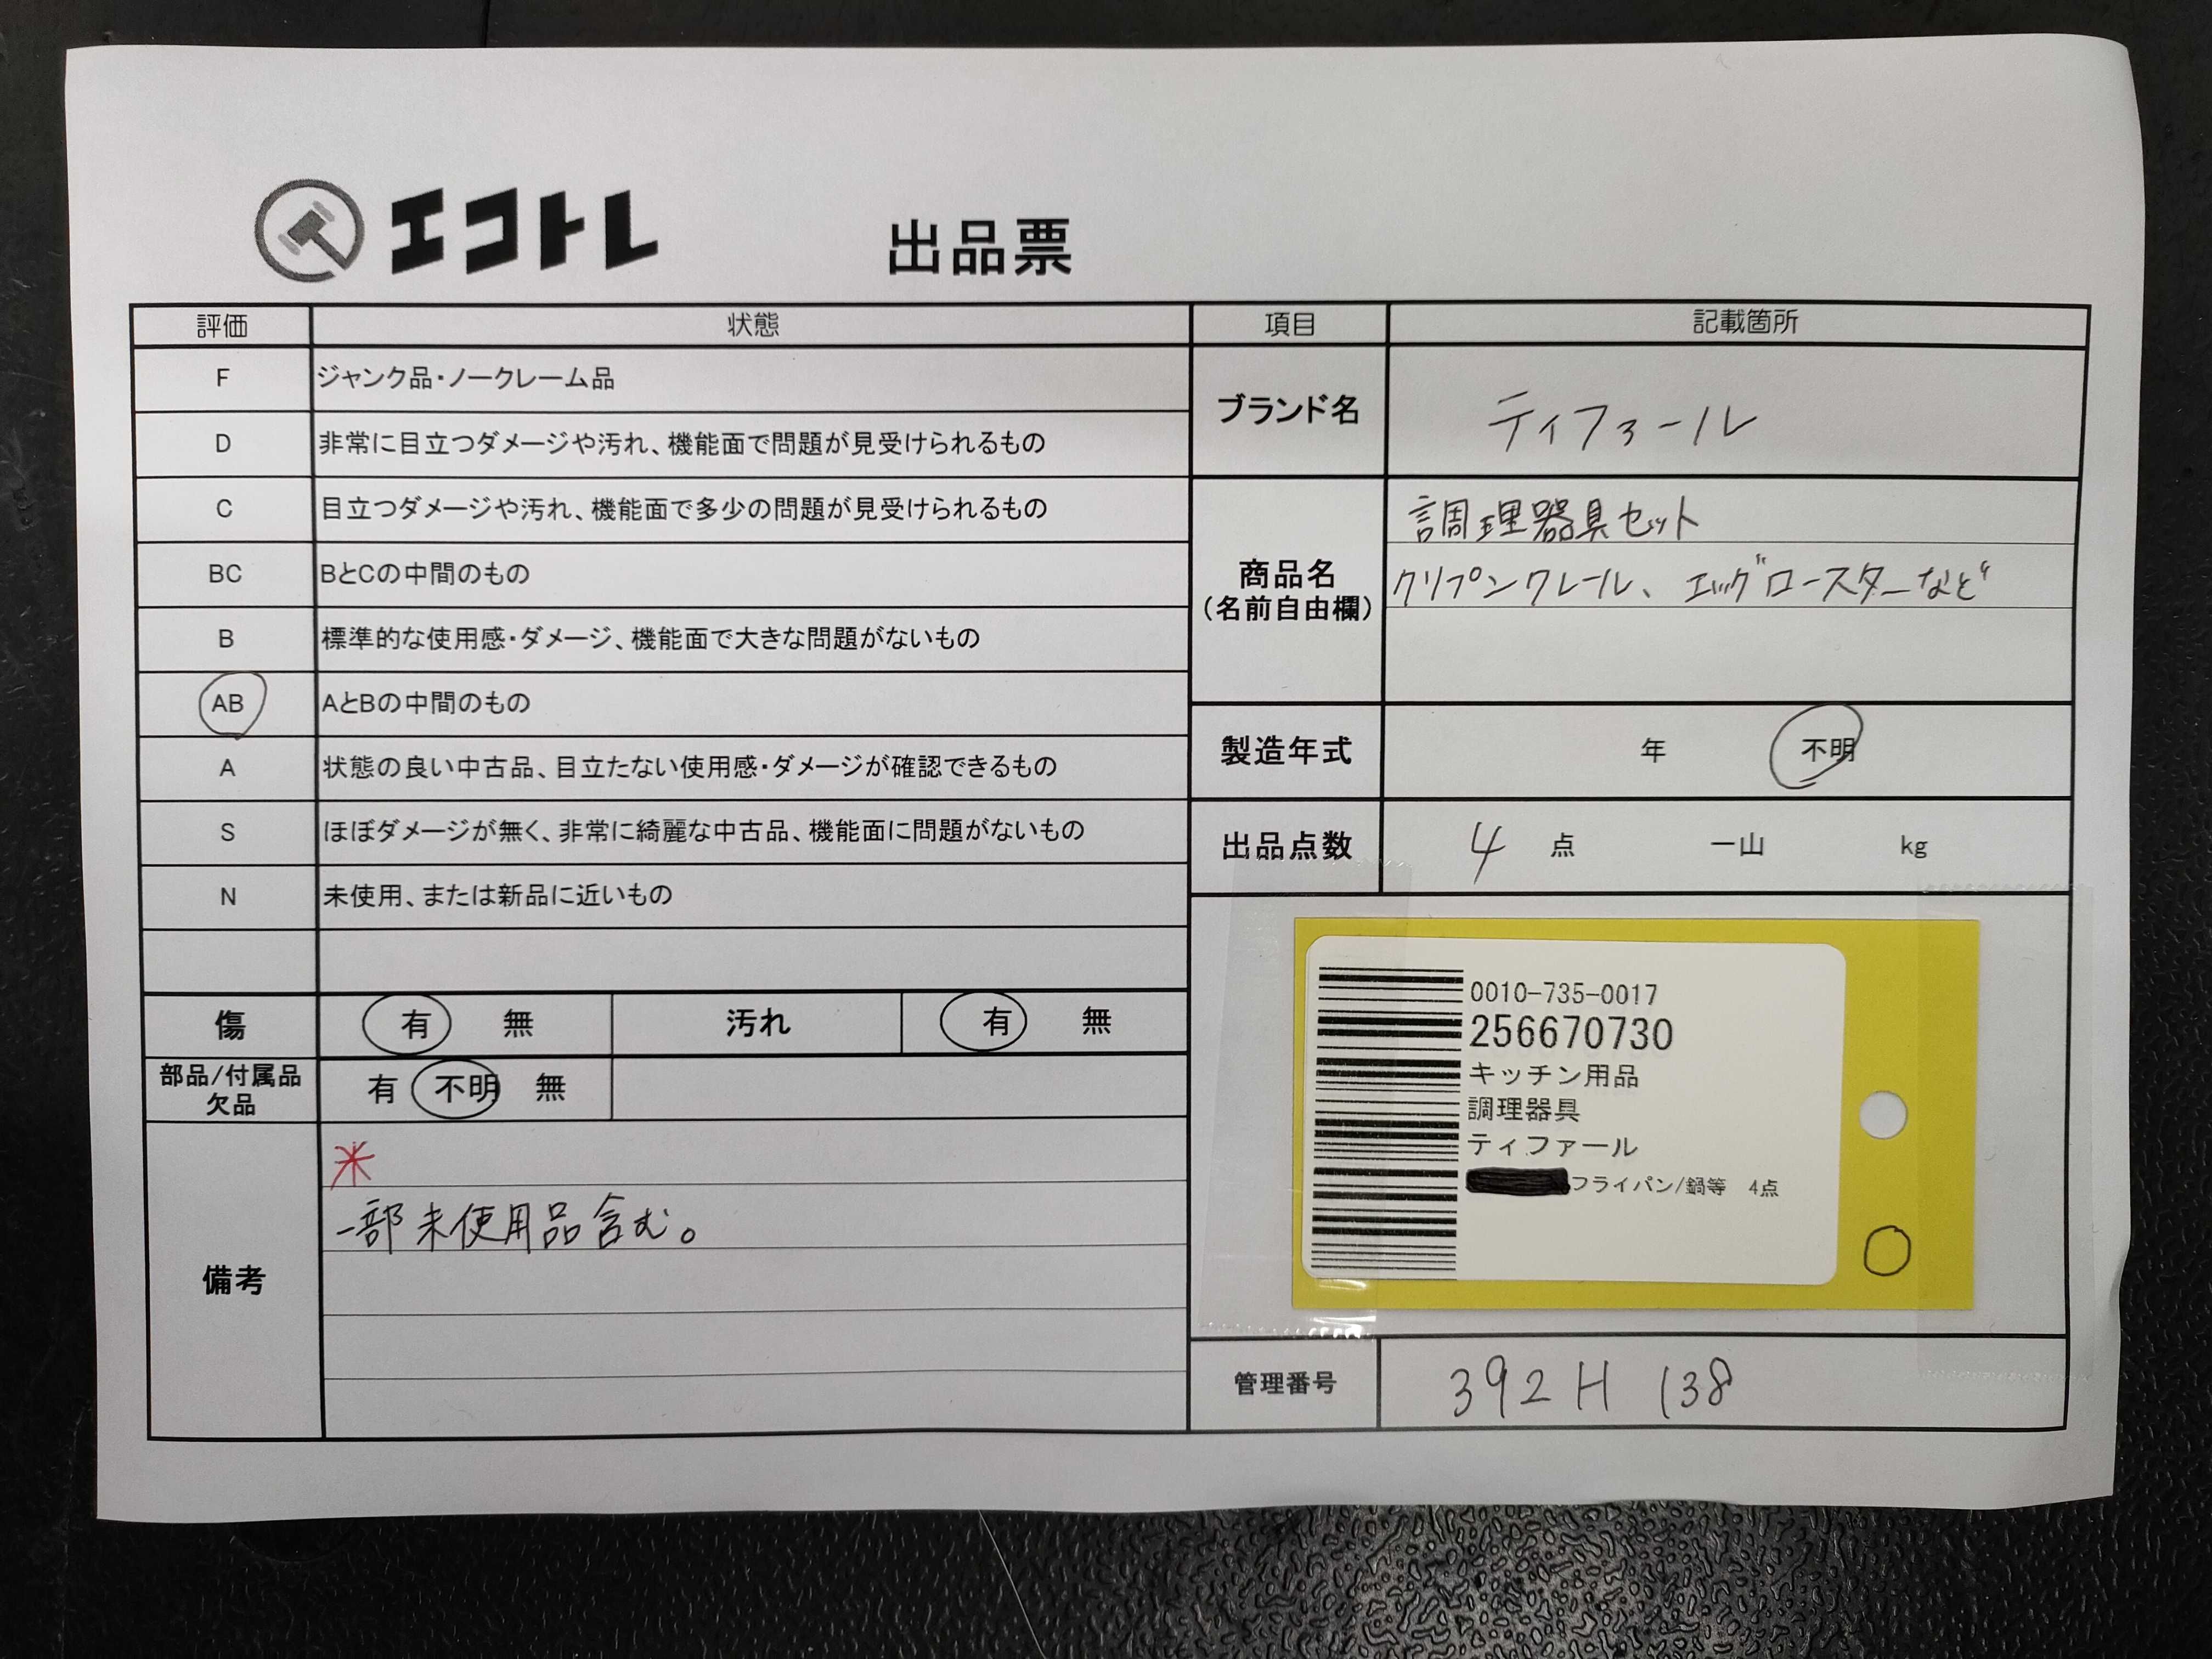 エコトレ
出品票
評価 状態
F ジャンク品・ノークレーム品
D 非常に目立つダメージや汚れ、機能面で問題が見受けられるもの
C 目立つダメージや汚れ、機能面で多少の問題が見受けられるもの
BC BとCの中間のもの
B 標準的な使用感・ダメージ、機能面で大きな問題がないもの
AB AとBの中間のもの
A 状態の良い中古品、目立たない使用感・ダメージが確認できるもの
S ほぼダメージが無く、非常に綺麗な中古品、機能面に問題がないもの
N 未使用、または新品に近いもの
傷 有 無 汚れ 有 無
部品/付属品
欠品
有 不明 無
備考
※
一部未使用品含む。
項目 記載箇所
ブランド名 ティファール
商品名
(名前自由欄)
調理器具セット
クリプンクレール、エッグロースターなど
製造年式 年 不明
出品点数 4 点 一山 kg
0010-735-0017
256670730
キッチン用品
調理器具
ティファール
フライパン/鍋等 4点
管理番号 392H 138